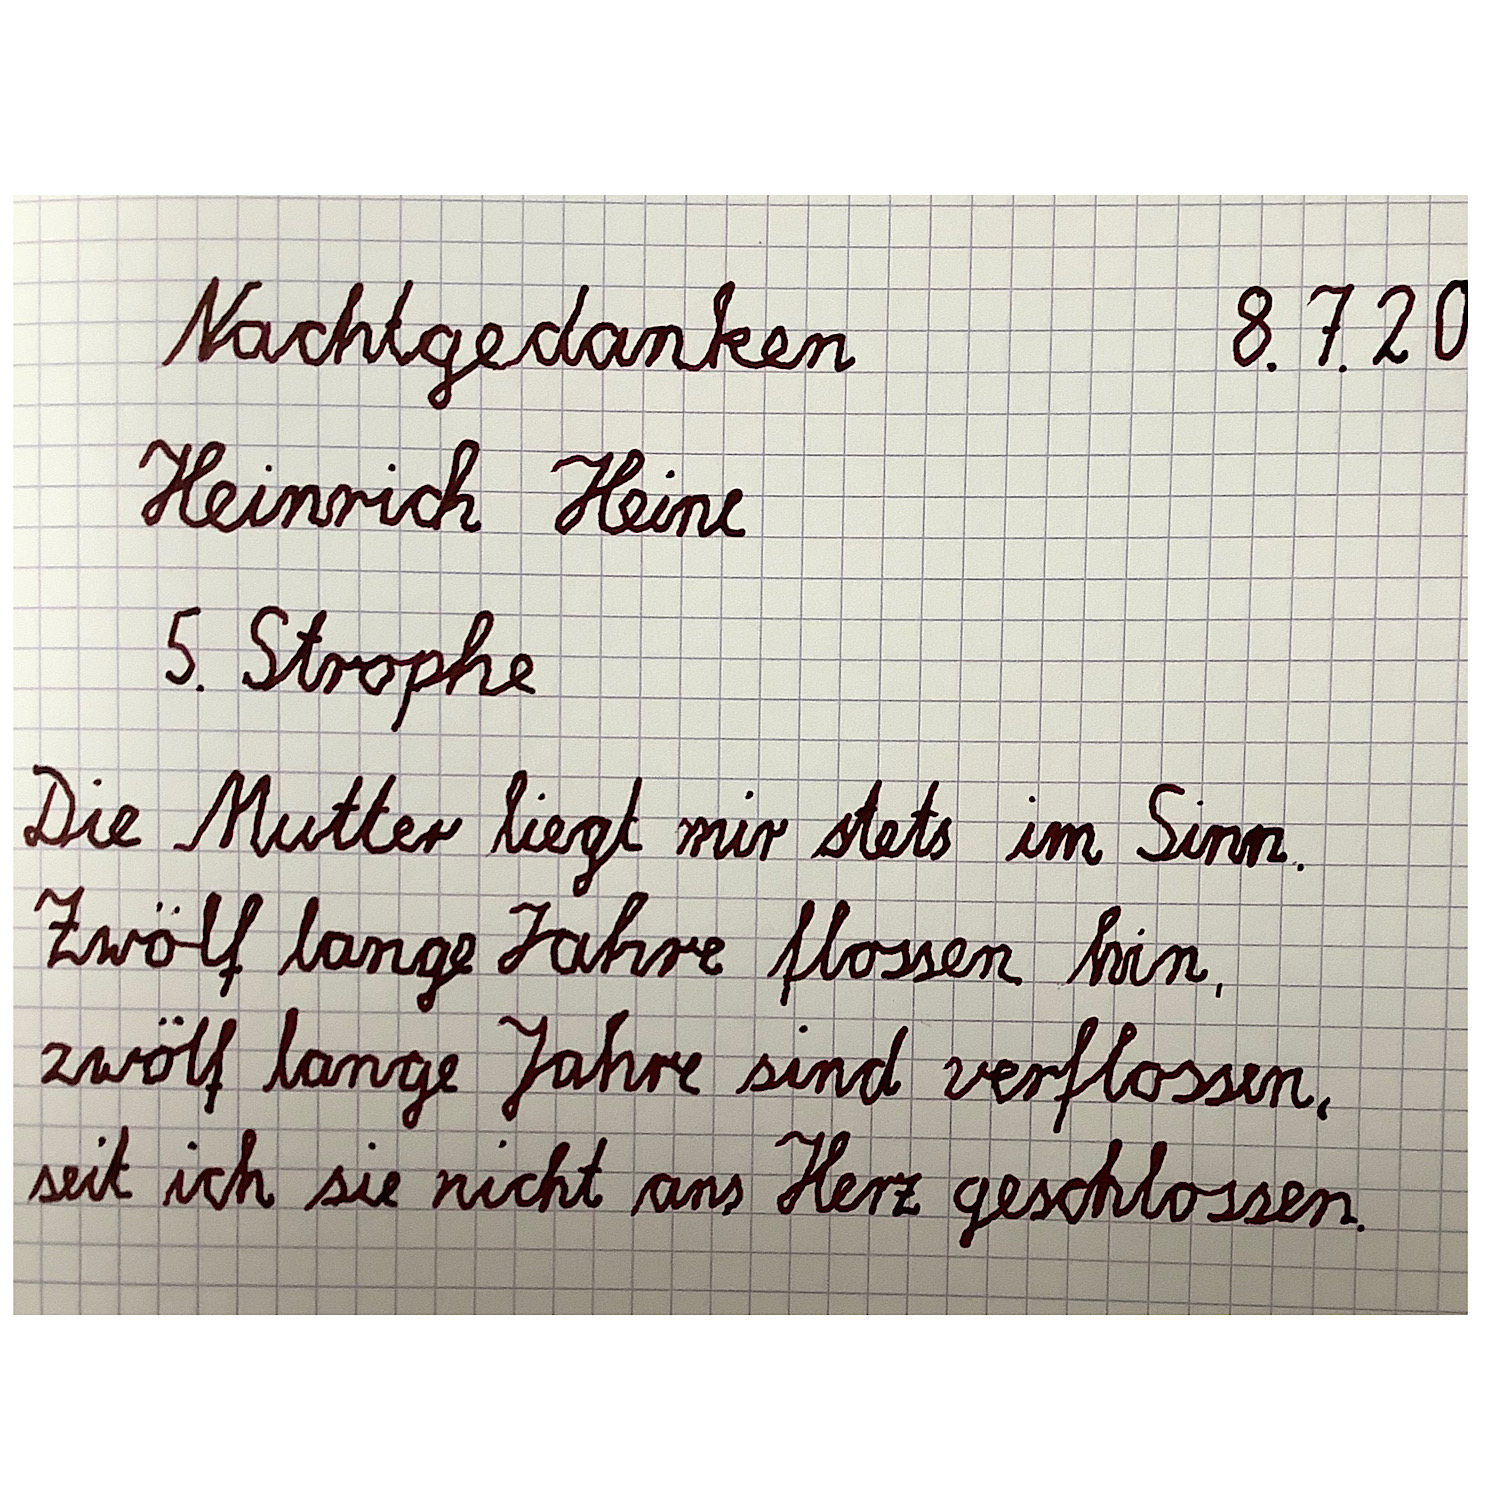 Nachtgedanken 8.7.20
Heinrich Heine
5. Strophe
Die Mutter liegt mir stets im Sinn.
Zwölf lange Jahre flossen hin,
zwölf lange Jahre sind verflossen,
seit ich sie nicht ans Herz geschlossen.